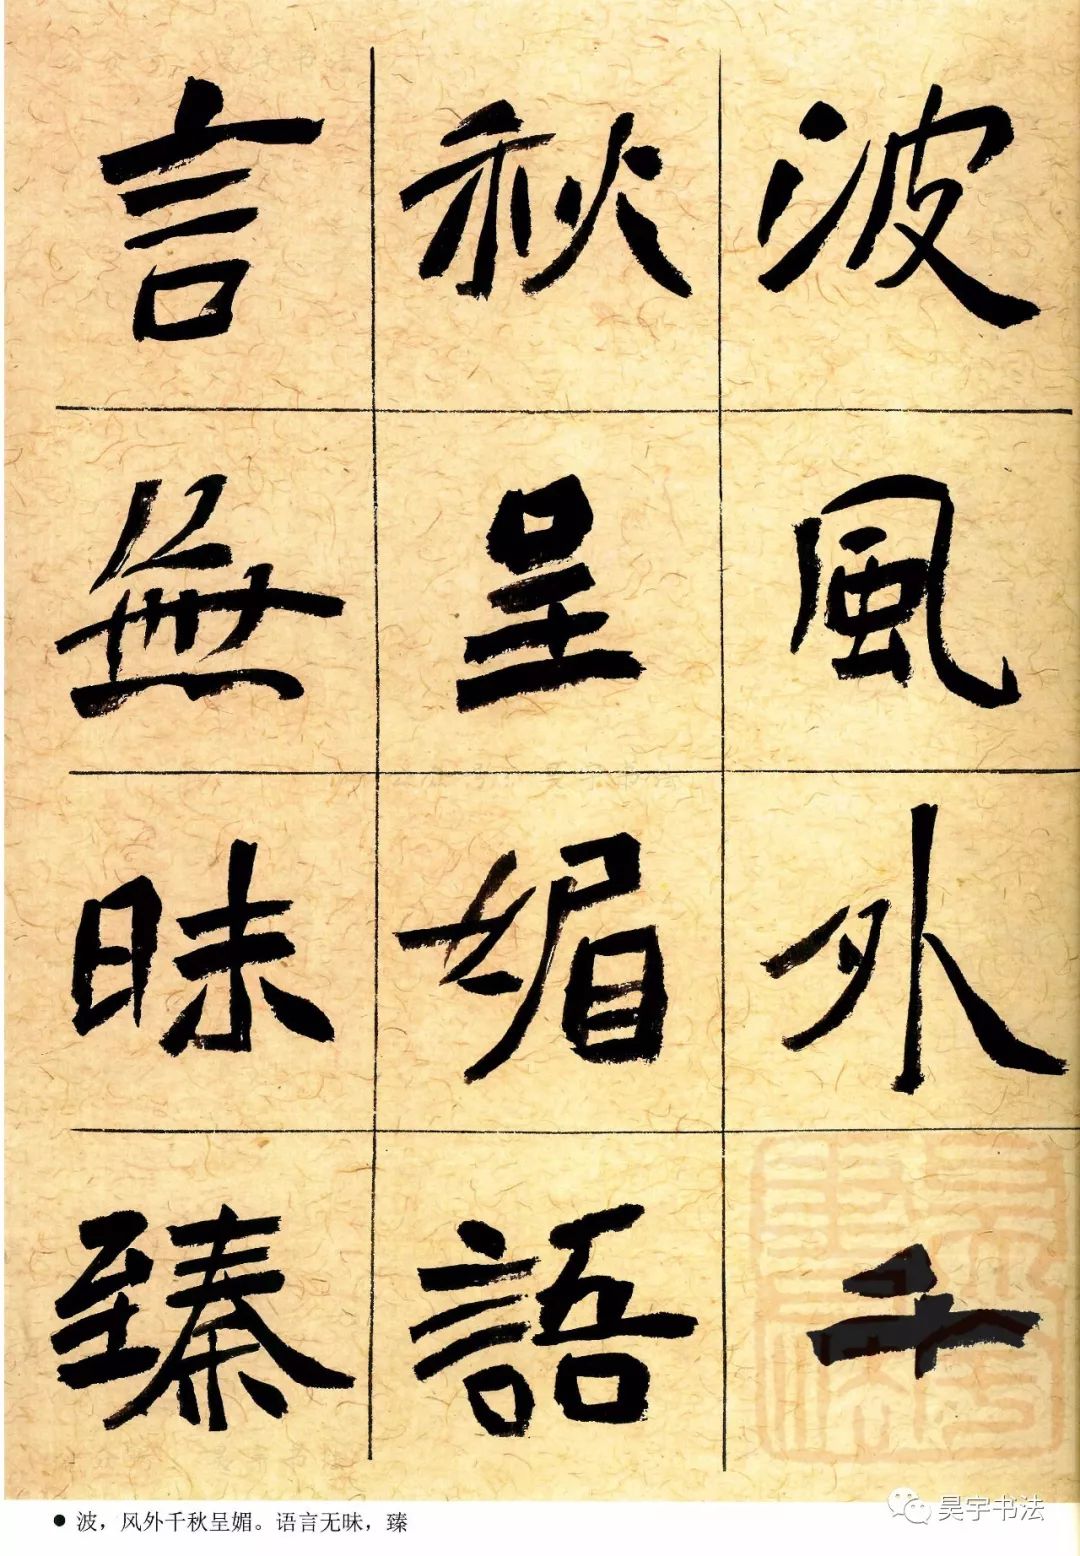 波風外千
秋呈媚語
言無昧臻
波，风外千秋呈媚。语言无昧，臻
昊宇书法